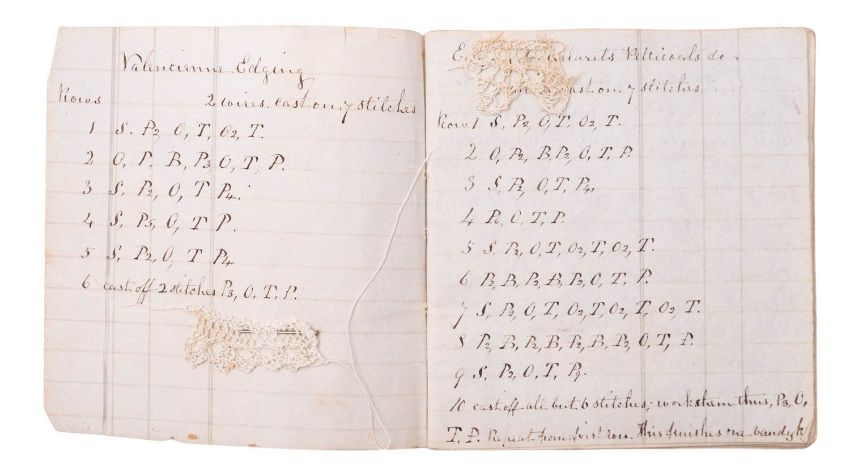 Valencienne Edging
Rows
2 wires. cast on 7 stitches
1 S. P2 O, T, O2, T.
2 O, P, B, P3 O, T, P.
3 S, P2, O, T P4.
4 S, P5, O, T P.
5 S, P2, O, T P4
6 cast off 2 stitches P3, O, T, P.
Petticoats &c
cast on 7 stitches
Row 1 S, P2, O, T, O2, T.
2 O, P2, B, P2, O, T, P.
3 S, P2, O, T, P4,
4 O, T, P.
5 S, P2, O, T, O2, T, O2, T.
6 P2, B, P2, B, P2, O, T, P.
7 S, P2, O, T, O2, T, O2, T, O2, T.
8 P2, B, P2, B, P2, B, P2, O, T, P.
9 S, P2, O, T, P9.
10 cast off all but 6 stitches; work them thus, P3, O,
T, P. Repeat from first row. This finishes one vandyk